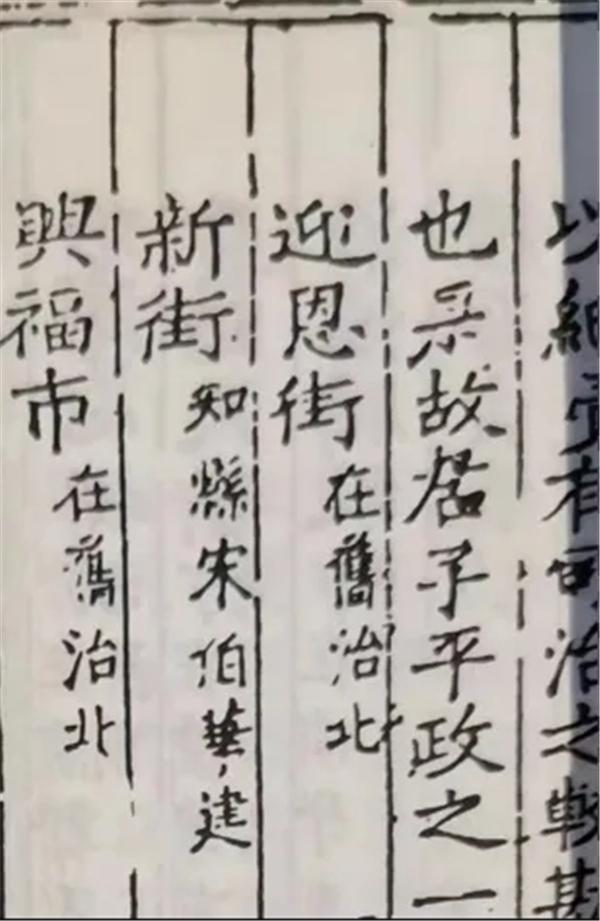 以紙有司治之
也故居子平政之一
迎恩街在舊治北
新街知縣宋伯華建
興福市在舊治北